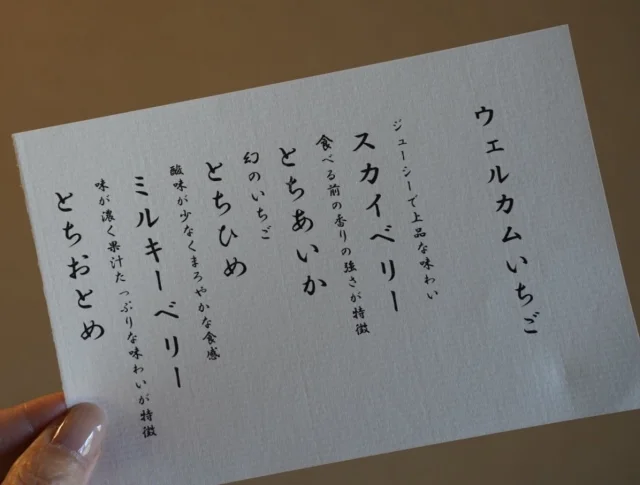 ウェルカムいちご
ジューシーで上品な味わい
スカイベリー
食べる前の香りの強さが特徴
とちあいか
幻のいちご
とちひめ
酸味が少なくまろやかな食感
ミルキーベリー
味が濃く果汁たっぷりな味わいが特徴
とちおとめ